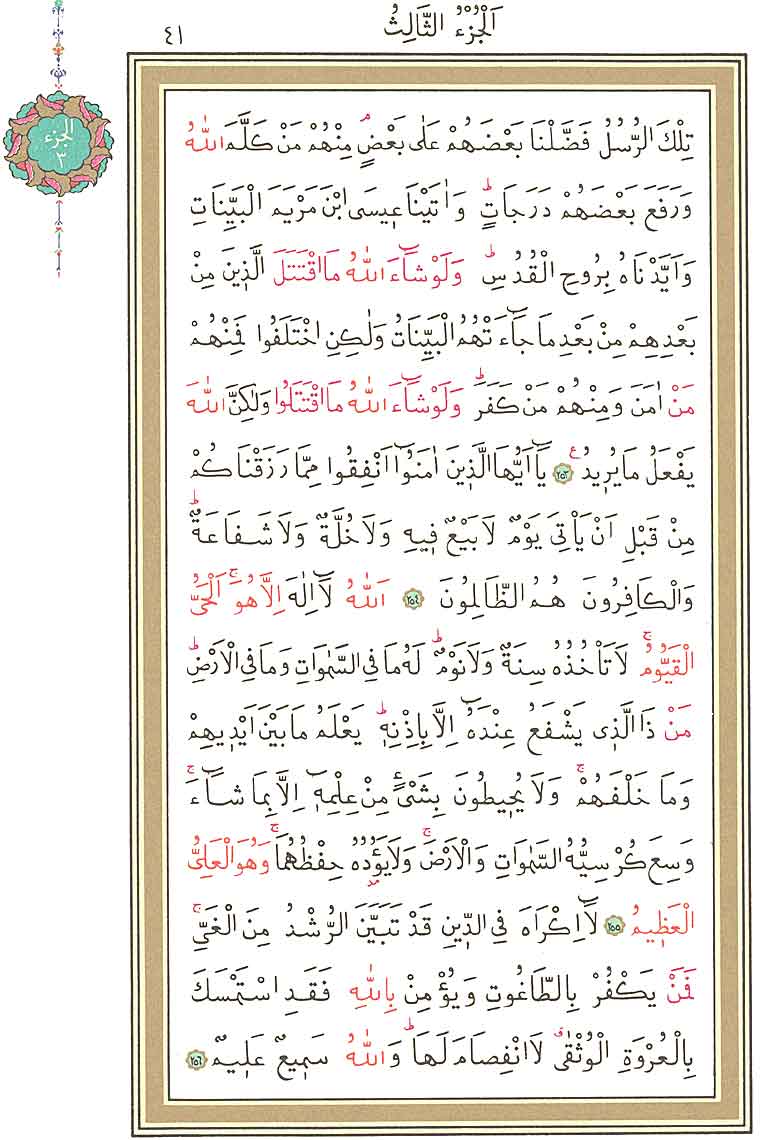 اَلْجُزْءُ الثَّالِثُ
٤١
الجزء
٣
تِلْكَ الرُّسُلُ فَضَّلْنَا بَعْضَهُمْ عَلٰى بَعْضٍۢ مِنْهُمْ مَنْ كَلَّمَ اللّٰهُ
وَرَفَعَ بَعْضَهُمْ دَرَجَاتٍۜ وَاٰتَيْنَا ع۪يسَى ابْنَ مَرْيَمَ الْبَيِّنَاتِ
وَاَيَّدْنَاهُ بِرُوحِ الْقُدُسِۜ وَلَوْ شَٓاءَ اللّٰهُ مَا اقْتَتَلَ الَّذ۪ينَ مِنْ
بَعْدِهِمْ مِنْ بَعْدِ مَا جَٓاءَتْهُمُ الْبَيِّنَاتُ وَلٰكِنِ اخْتَلَفُوا فَمِنْهُمْ
مَنْ اٰمَنَ وَمِنْهُمْ مَنْ كَفَرَۜ وَلَوْ شَٓاءَ اللّٰهُ مَا اقْتَتَلُوا وَلٰكِنَّ اللّٰهَ
يَفْعَلُ مَا يُر۪يدُ ع ٢٥٣ يَٓا اَيُّهَا الَّذ۪ينَ اٰمَنُٓوا اَنْفِقُوا مِمَّا رَزَقْنَاكُمْ
مِنْ قَبْلِ اَنْ يَأْتِيَ يَوْمٌ لَا بَيْعٌ ف۪يهِ وَلَا خُلَّةٌ وَلَا شَفَاعَةٌۜ
وَالْكَافِرُونَ هُمُ الظَّالِمُونَ ٢٥٤ اَللّٰهُ لَٓا اِلٰهَ اِلَّا هُوَۚ اَلْحَيُّ
الْقَيُّومُۚ لَا تَأْخُذُهُ سِنَةٌ وَلَا نَوْمٌۜ لَهُ مَا فِي السَّمٰوَاتِ وَمَا فِي الْاَرْضِۜ
مَنْ ذَا الَّذ۪ي يَشْفَعُ عِنْدَهُٓ اِلَّا بِاِذْنِه۪ۜ يَعْلَمُ مَا بَيْنَ اَيْد۪يهِمْ
وَمَا خَلْفَهُمْۚ وَلَا يُح۪يطُونَ بِشَيْءٍ مِنْ عِلْمِه۪ٓ اِلَّا بِمَا شَٓاءَۚ
وَسِعَ كُرْسِيُّهُ السَّمٰوَاتِ وَالْاَرْضَۚ وَلَا يَؤُ۫دُهُ حِفْظُهُمَاۚ وَهُوَ الْعَلِيُّ
الْعَظ۪يمُ ٢٥٥ لَٓا اِكْرَاهَ فِي الدّ۪ينِ قَدْ تَبَيَّنَ الرُّشْدُ مِنَ الْغَيِّۚ
فَمَنْ يَكْفُرْ بِالطَّاغُوتِ وَيُؤْمِنْ بِاللّٰهِ فَقَدِ اسْتَمْسَكَ
بِالْعُرْوَةِ الْوُثْقٰىۗ لَا انْفِصَامَ لَهَاۜ وَاللّٰهُ سَم۪يعٌ عَل۪يمٌ ٢٥٦